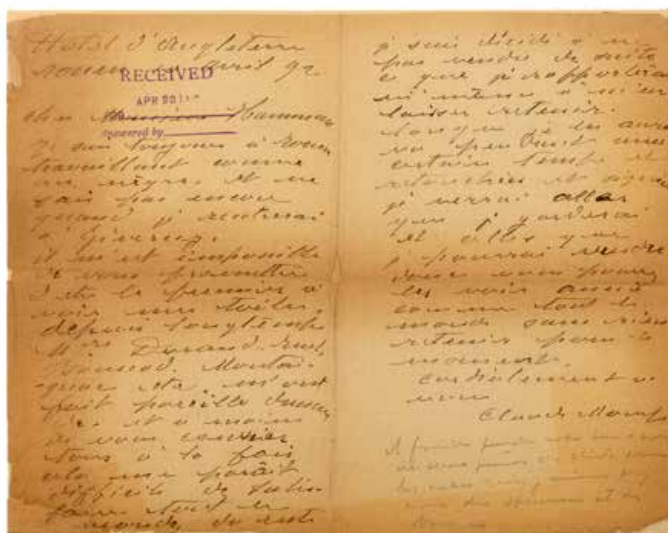 Hotel d'Angleterre
rouen avril 92
RECEIVED
APR 20
Answered by
cher Monsieur Hamman
je suis toujours à rouen
travaillant comme
un nègre et ne
sais pas encore
quand je rentrerai
à Giverny.
il m'est impossible
de vous promettre
d'etre le premier à
voir mes toiles,
depuis longtemps
Mrs Durand-Ruel,
Boussod, Montai-
gnac etc. m'ont
fait pareille demande
et à moins
de vous convier
tous à la fois
cela me paraît
difficile de satis-
faire tout le
monde, du reste
je suis décidé à ne
pas vendre de suite
ce que je rapporterai
ni même à m'en
laisser retenir.
lorsque je les aurai
vu pendant un
certain temps et
retouchées et signées
je verrai celles
que je garderai
et celles que
je pourrai vendre
donc vous pourrez
les voir
comme tout le
monde sans rien
retenir pour le
moment.
Cordialement à
vous
Claude Monet